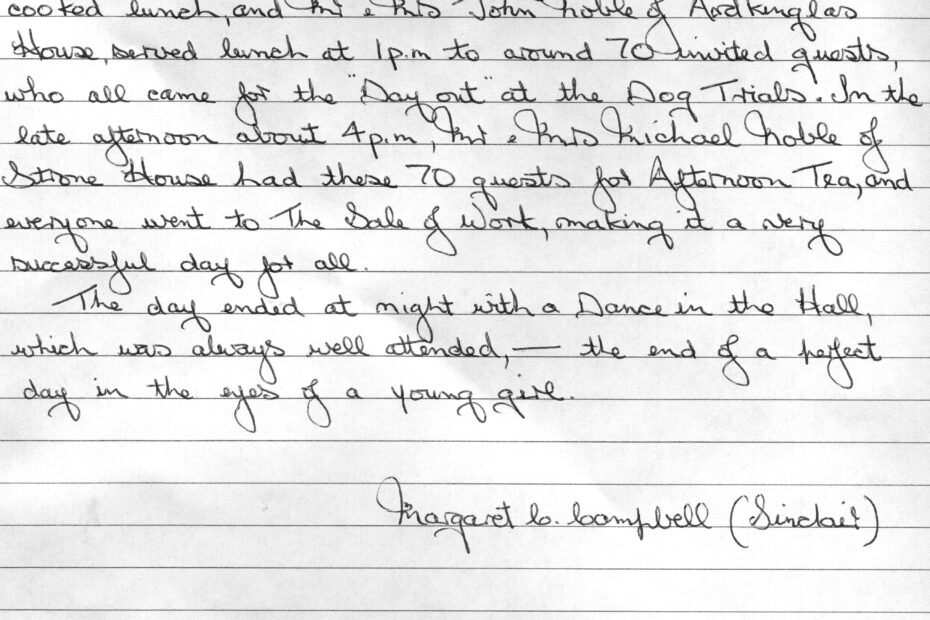 cooked lunch, and Mr & Mrs John Noble of Ardkinglas
House, served lunch at 1p.m to around 70 invited guests,
who all came for the "Day out" at the Dog Trials. In the
late afternoon about 4p.m, Mr & Mrs Michael Noble of
Strone House had these 70 guests for Afternoon Tea, and
everyone went to The Sale of Work, making it a very
successful day for all.
The day ended at night with a Dance in the Hall,
which was always well attended, — the end of a perfect
day in the eyes of a young girl.
Margaret C. Campbell (Sinclair)